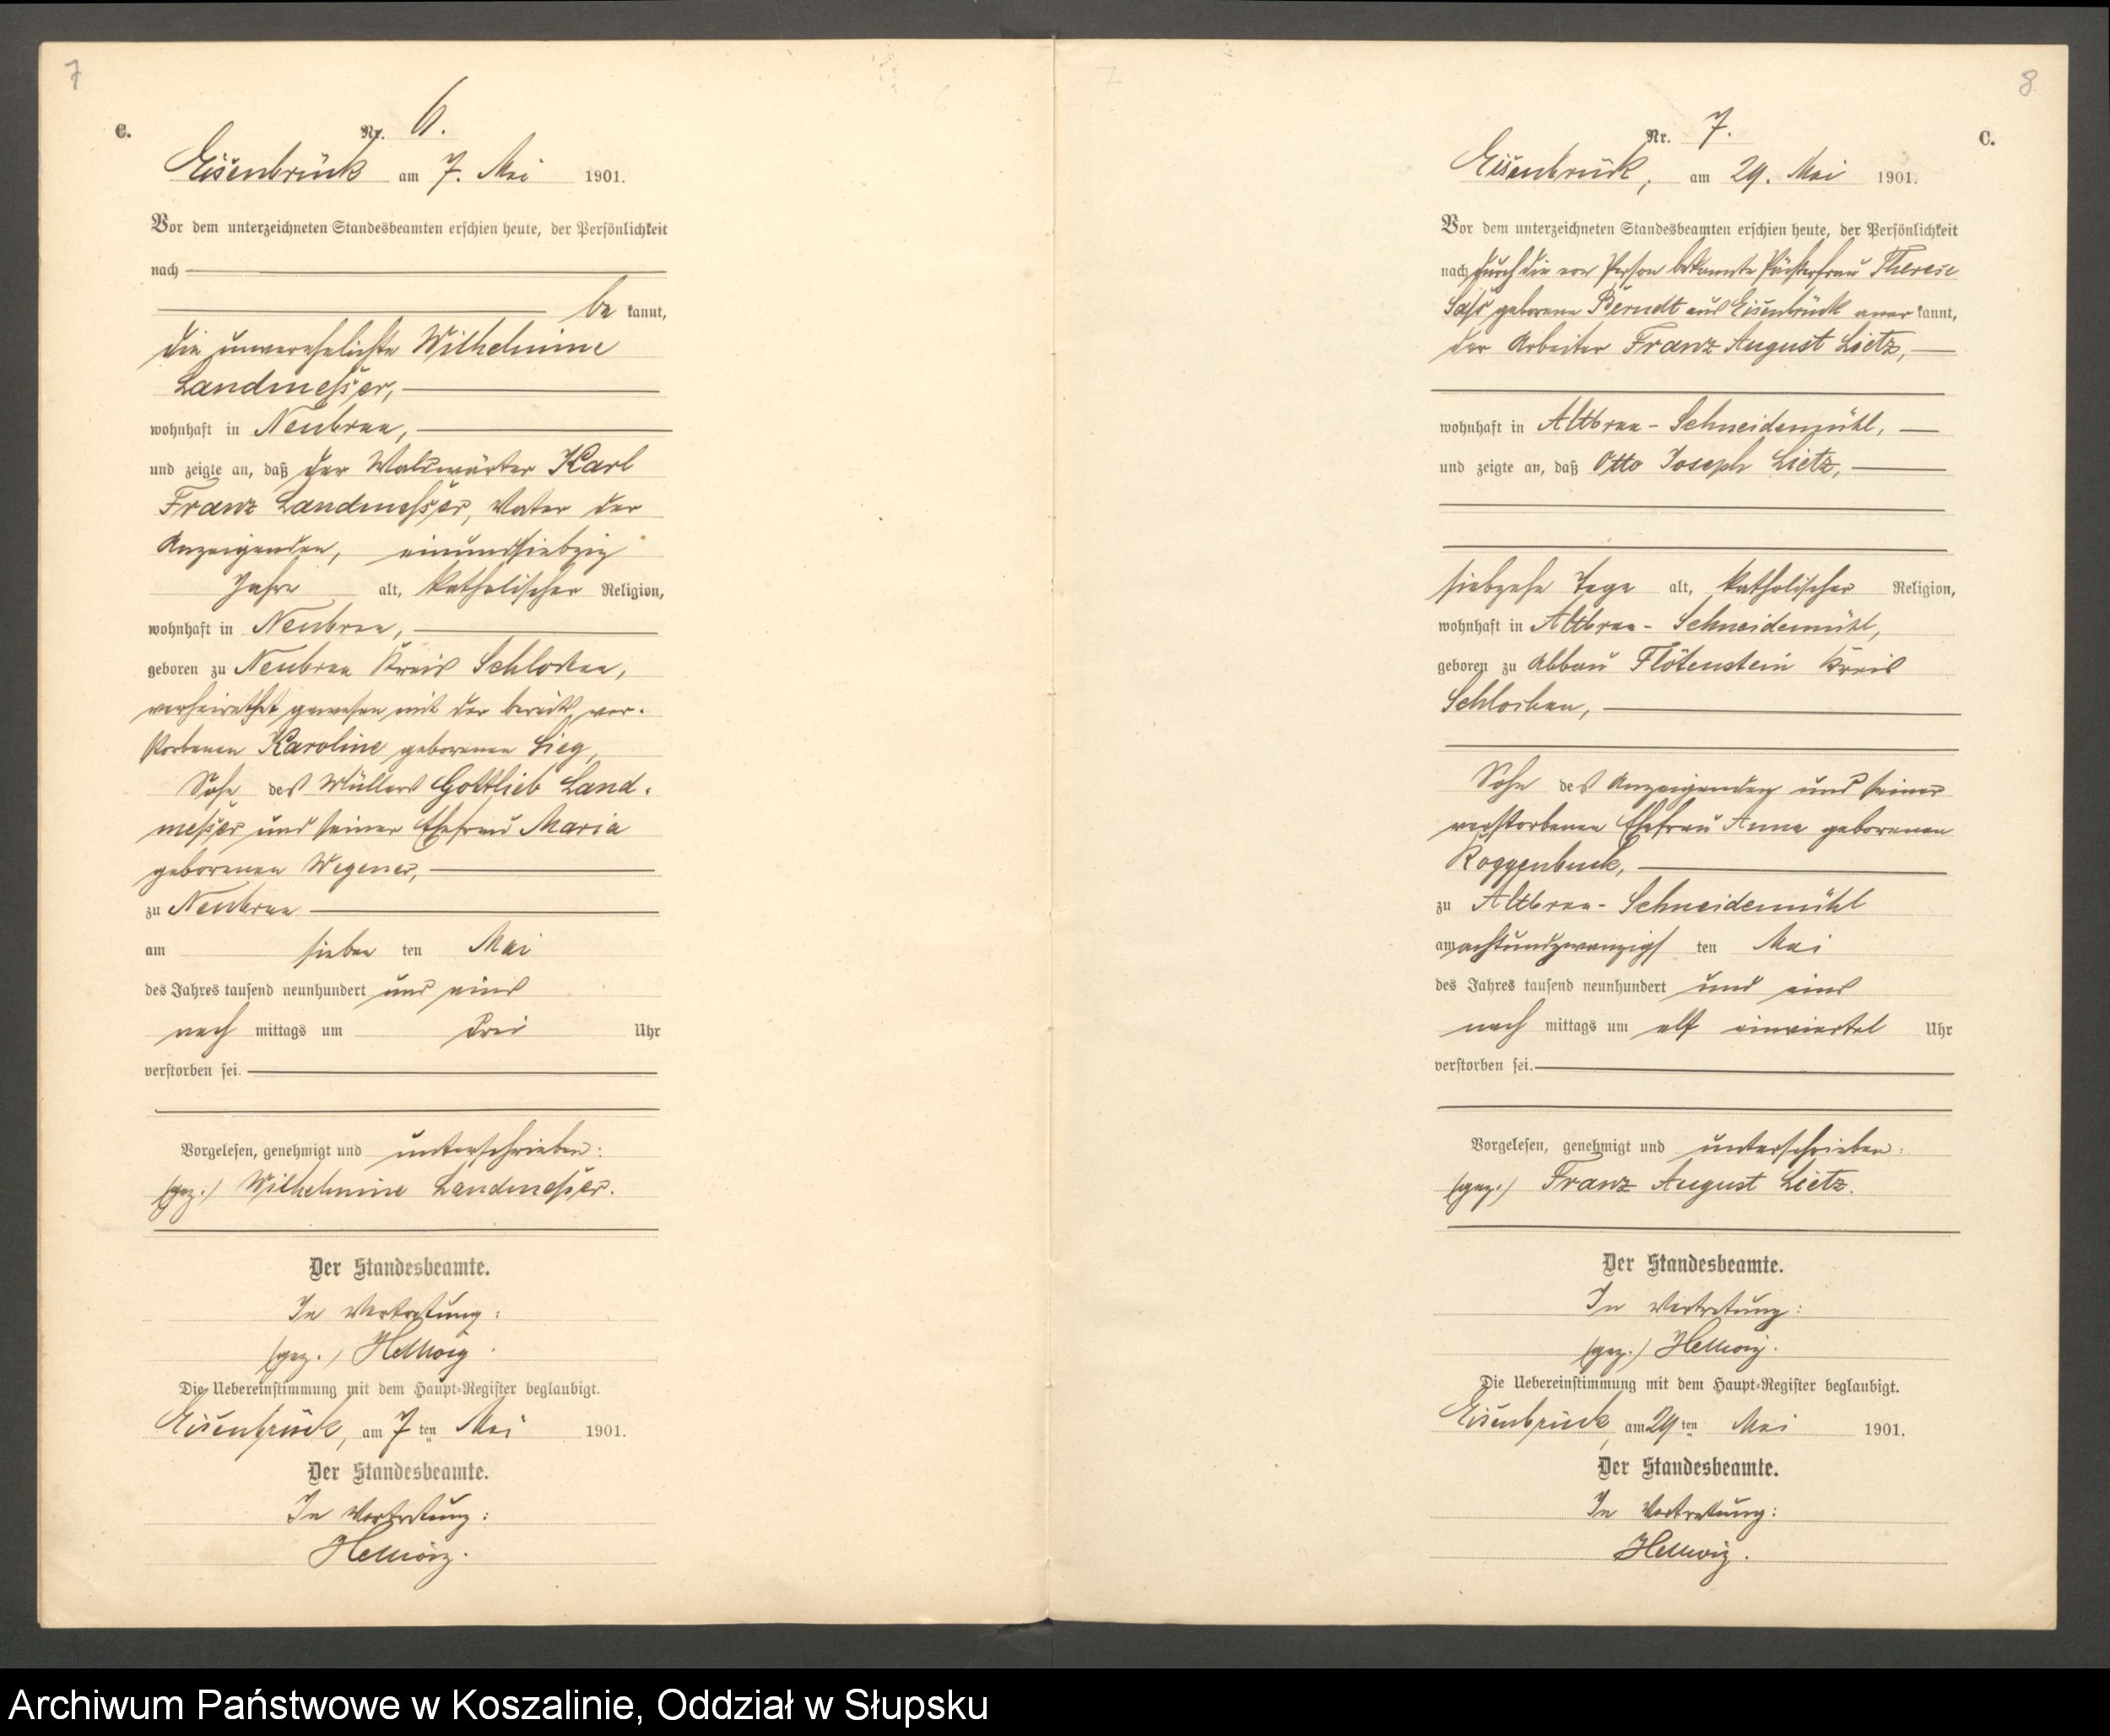 7
C.
Nr. 6.
Eisenbrück am 7. Mai 1901.
Vor dem unterzeichneten Standesbeamten erschien heute, der Persönlichkeit
nach
be kannt,
die unverehelichte Wilhelmine
Landmesser,
wohnhaft in Neubraa,
und zeigte an, daß der Waldwärter Karl
Franz Landmesser, Vater der
Anzeigenden, einundsiebzig
Jahre alt, katholischer Religion,
wohnhaft in Neubraa,
geboren zu Neubraa Kreis Schlochau,
verheirathet gewesen mit der bereits ver-
storbenen Karoline geborenen Lieg,
Sohn des Müllers Gottlieb Land-
messer und seiner Ehefrau Maria
geborenen Wegener,
zu Neubraa
am sieben ten Mai
des Jahres tausend neunhundert und eins
nach mittags um drei Uhr
verstorben sei.
Vorgelesen, genehmigt und unterschrieben:
(gez.) Wilhelmine Landmesser.
Der Standesbeamte.
In Vertretung:
(gez.) Hellwig.
Die Uebereinstimmung mit dem Haupt-Register beglaubigt.
Eisenbrück, am 7 ten Mai 1901.
Der Standesbeamte.
In Vertretung:
Hellwig.
8
C.
Nr. 7.
Eisenbrück, am 29. Mai 1901.
Vor dem unterzeichneten Standesbeamten erschien heute, der Persönlichkeit
nach durch die von Person bekannte Pächterfrau Therese
Saß geborene Berndt aus Eisenbrück aner kannt,
der Arbeiter Franz August Lietz,
wohnhaft in Altbraa-Schneidemühl,
und zeigte an, daß Otto Joseph Lietz,
siebzehn Tage alt, katholischer Religion,
wohnhaft in Altbraa-Schneidemühl,
geboren zu Abbau Flötenstein Kreis
Schlochau,
Sohn des Anzeigenden und seiner
verstorbenen Ehefrau Anna geborenen
Roggenbuck,
zu Altbraa-Schneidemühl
am achtundzwanzigs ten Mai
des Jahres tausend neunhundert und eins
nach mittags um elf einviertel Uhr
verstorben sei.
Vorgelesen, genehmigt und unterschrieben:
(gez.) Franz August Lietz.
Der Standesbeamte.
In Vertretung:
(gez.) Hellwig.
Die Uebereinstimmung mit dem Haupt-Register beglaubigt.
Eisenbrück, am 29 ten Mai 1901.
Der Standesbeamte.
In Vertretung:
Hellwig.
Archiwum Państwowe w Koszalinie, Oddział w Słupsku